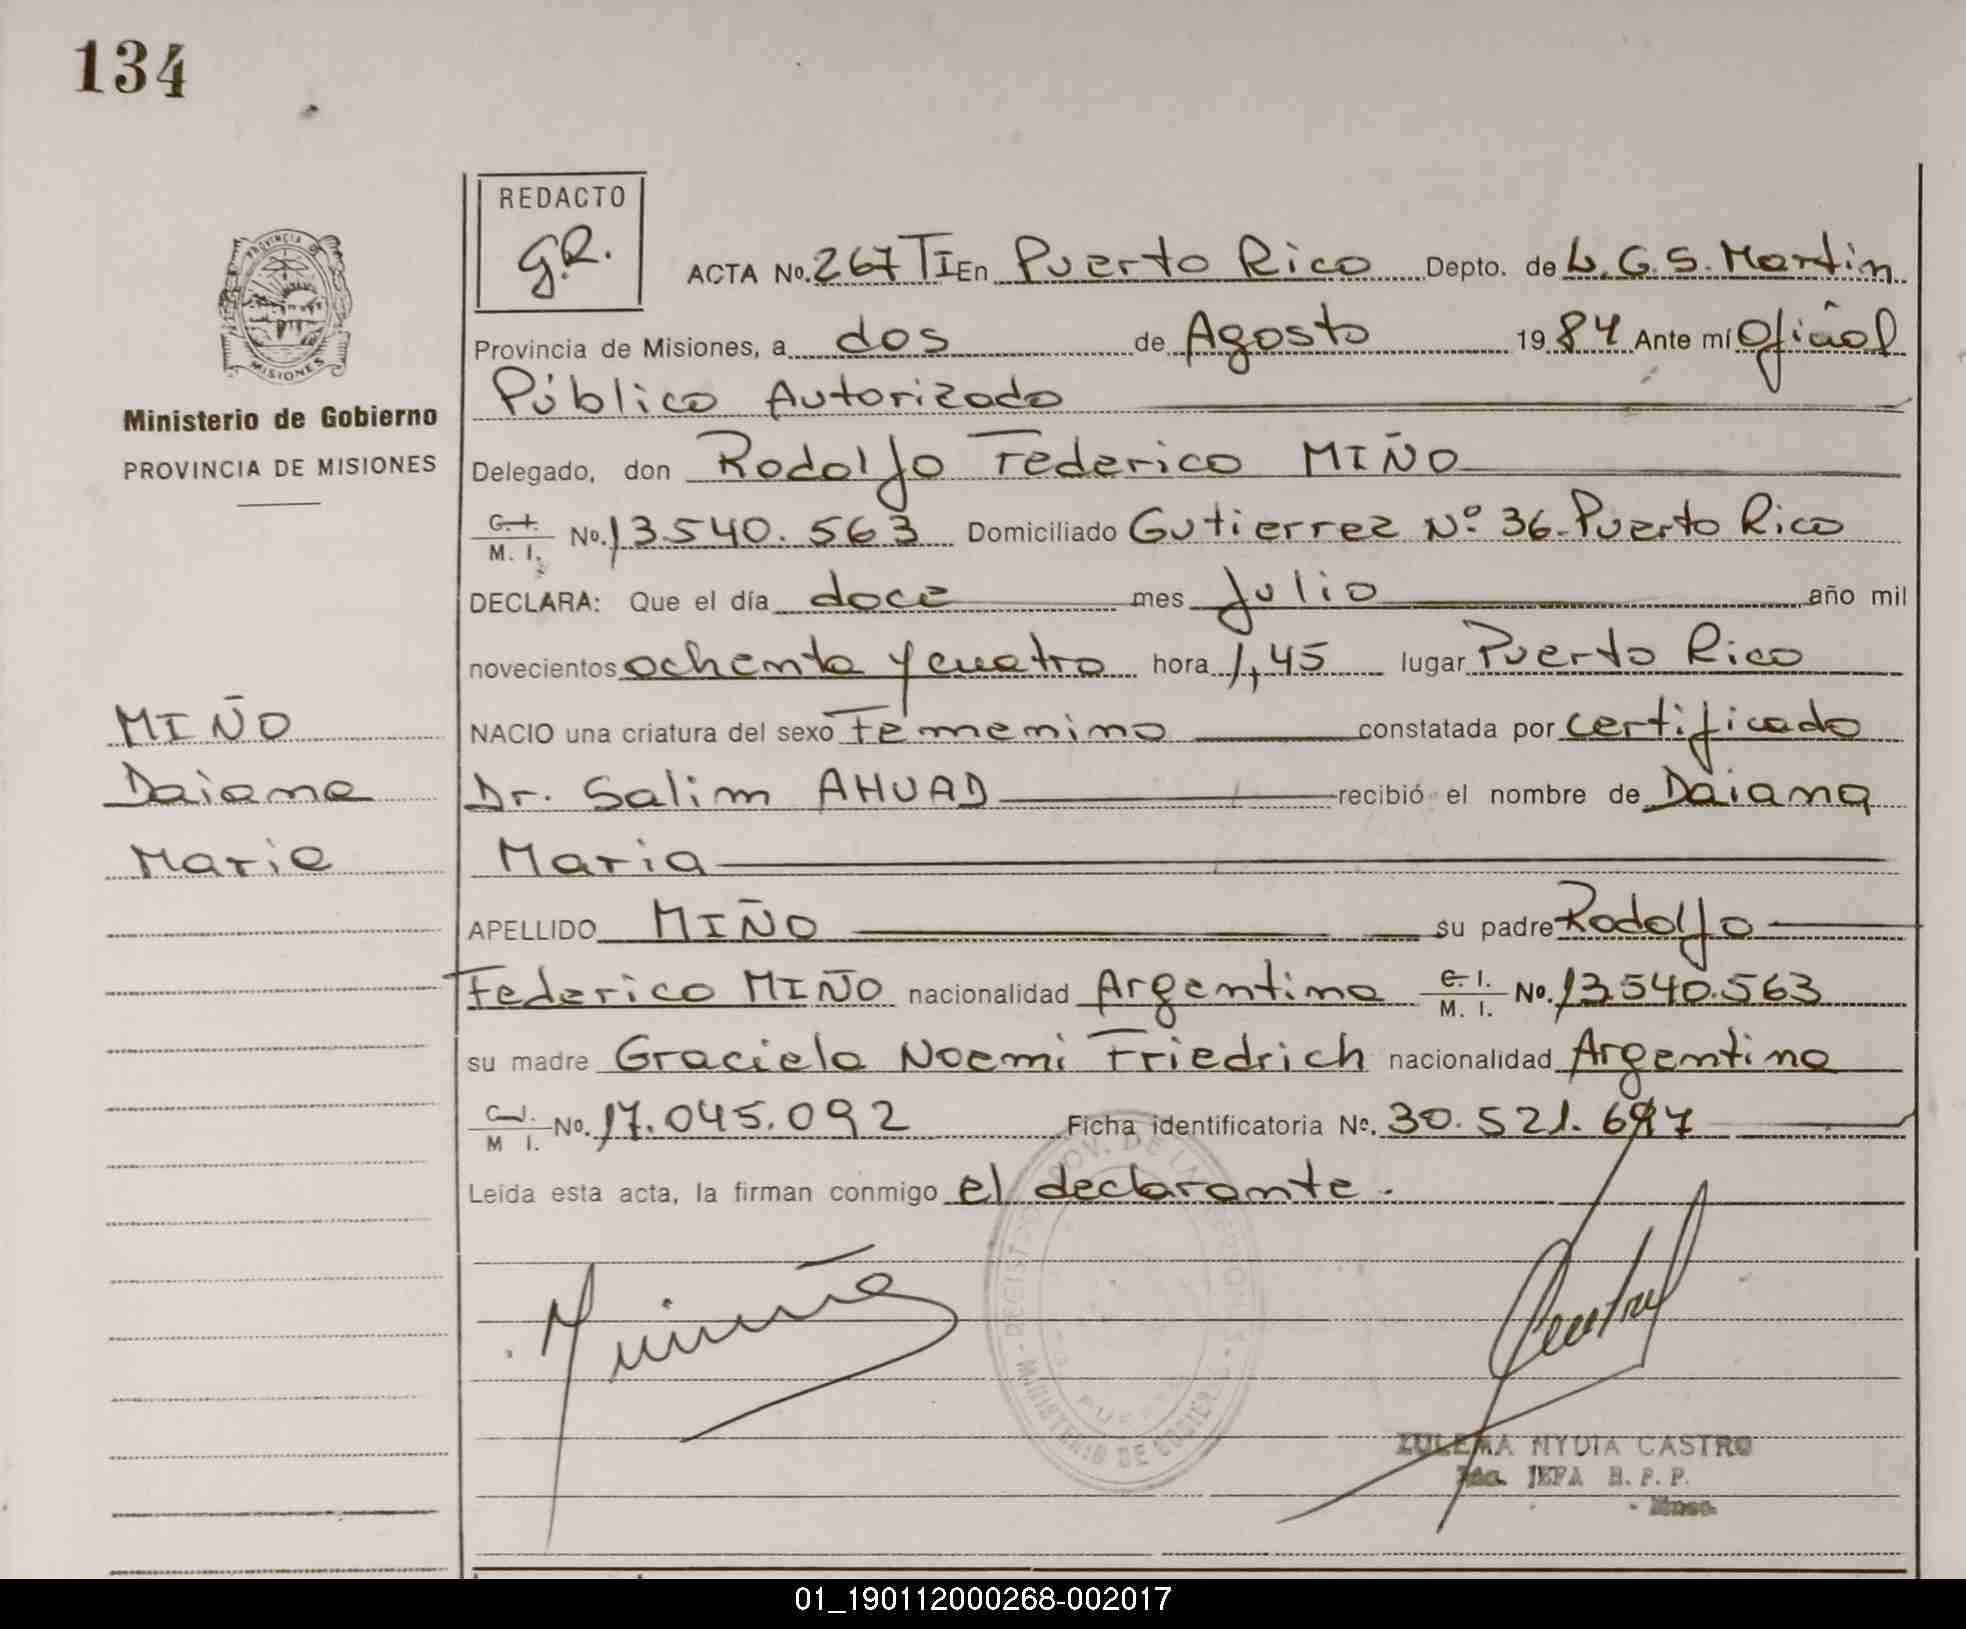 134
REDACTO
G.R.
ACTA No. 267 TI En Puerto Rico Depto. de L.G.S. Martin
Provincia de Misiones, a dos de Agosto 1984 Ante mí Oficial
Público Autorizado
Delegado, don Rodolfo Federico MIÑO
C. I. M. I. No. 13.540.563 Domiciliado Gutierrez Nº 36-Puerto Rico
DECLARA: Que el día doce mes Julio año mil
novecientos ochenta y cuatro hora 1,45 lugar Puerto Rico
NACIO una criatura del sexo Femenino constatada por certificado
Dr. Salim AHUAD recibió el nombre de Daiana
Maria
APELLIDO MIÑO su padre Rodolfo
Federico MIÑO nacionalidad Argentina C. I. M. I. No. 13.540.563
su madre Graciela Noemi Friedrich nacionalidad Argentina
C. I. M I. No. 17.045.092 Ficha identificatoria No. 30.521.697
Leída esta acta, la firman conmigo el declarante.
PROVINCIA DE
MISIONES
Ministerio de Gobierno
PROVINCIA DE MISIONES
MIÑO
Daiana
Maria
ZULEMA NYDIA CASTRO
JEFA R. P. P.
01_190112000268-002017